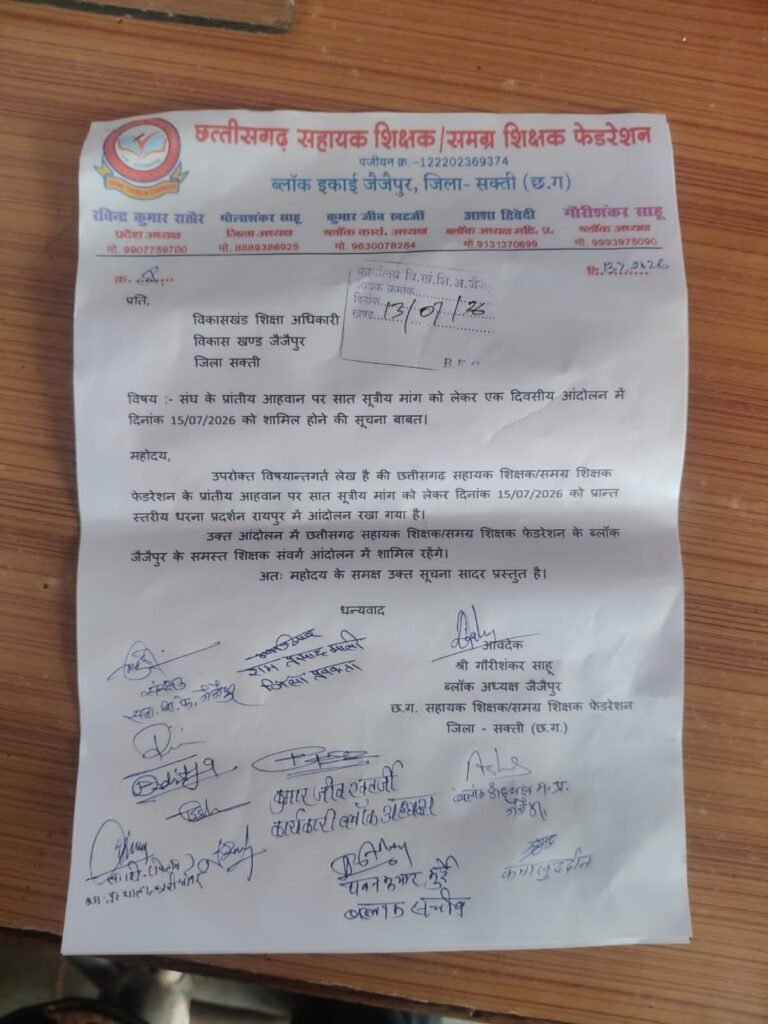 छत्तीसगढ़ सहायक शिक्षक/समग्र शिक्षक फेडरेशन
पंजीयन क्र.-122202369374
ब्लॉक इकाई जैजैपुर, जिला- सक्ती (छ.ग)
रविन्द्र कुमार राठोर भोलाशंकर साहू कुमार जीव खटर्जी आशा द्विवेदी गौरीशंकर साहू
प्रदेश अध्यक्ष जिला अध्यक्ष ब्लॉक कार्य. अध्यक्ष ब्लॉक अध्यक्ष महि. प्र. ब्लॉक अध्यक्ष
मो. 9907759700 मो. 8889386925 मो. 9630078284 मो.9131370699 मो. 9993975090
क्र. दि. 13.7.2026
कार्यालय वि.खं.शि.अ.जैजै
आवक क्रमांक
दिनांक 13/07/26
खण्ड
B.E.O
प्रति,
विकासखंड शिक्षा अधिकारी
विकास खण्ड जैजैपुर
जिला सक्ती
विषय :- संघ के प्रांतीय आहवान पर सात सूत्रीय मांग को लेकर एक दिवसीय आंदोलन में
दिनांक 15/07/2026 को शामिल होने की सूचना बाबत।
महोदय,
उपरोक्त विषयान्तगर्त लेख है की छत्तीसगढ़ सहायक शिक्षक/समग्र शिक्षक
फेडरेशन के प्रांतीय आहवान पर सात सूत्रीय मांग को लेकर दिनांक 15/07/2026 को प्रान्त
स्तरीय धरना प्रदर्शन रायपुर में आंदोलन रखा गया है।
उक्त आंदोलन में छत्तीसगढ़ सहायक शिक्षक/समग्र शिक्षक फेडरेशन के ब्लॉक
जैजैपुर के समस्त शिक्षक संवर्ग आंदोलन में शामिल रहेंगे।
अतः महोदय के समक्ष उक्त सूचना सादर प्रस्तुत है।
धन्यवाद
आवदेक
श्री गौरीशंकर साहू
ब्लॉक अध्यक्ष जैजैपुर
छ.ग. सहायक शिक्षक/समग्र शिक्षक फेडरेशन
जिला - सक्ती (छ.ग.)
राम प्रसाद माली
जिला प्रवक्ता
संरक्षक
कुमार जीव खटर्जी
कार्यकारी ब्लॉक अध्यक्ष
कमालुद्दीन
पवन कुमार कुर्रे
ब्लाक सचिव